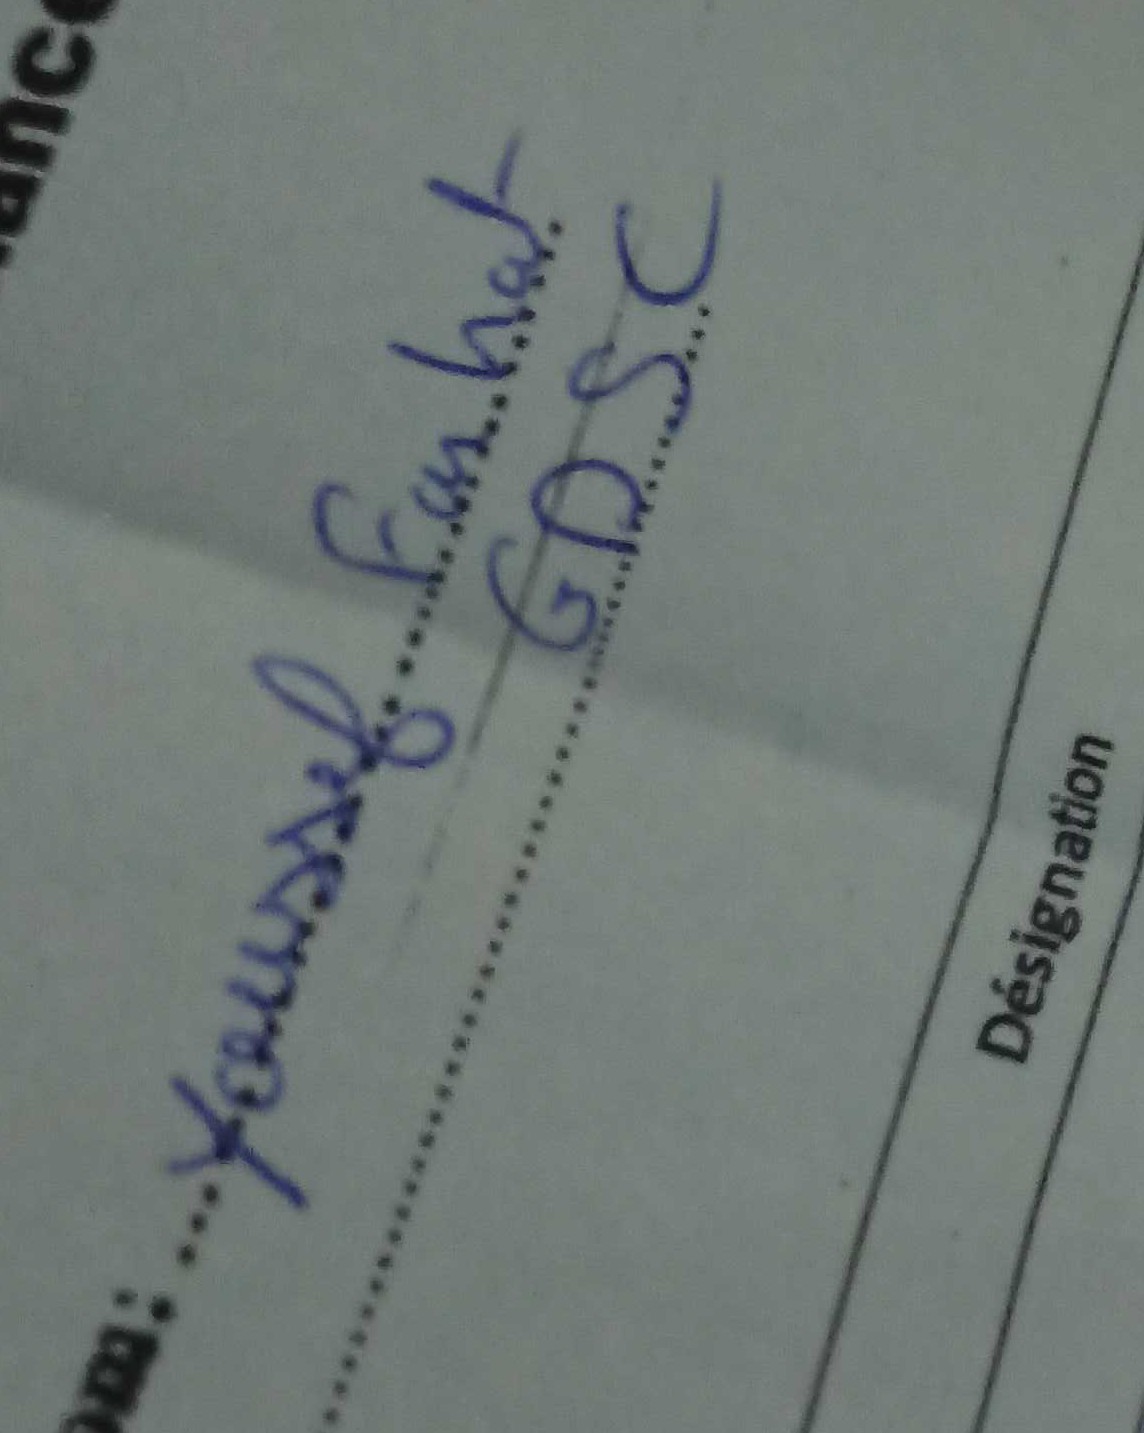 ance
om: Youssef Farhat
GDSC
Désignation